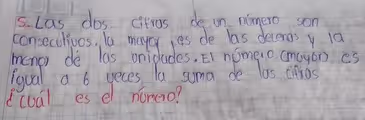 5. Las dos cifras de un número son
consecutivos. la mayor, es de las decenas y la
menor de las unidades. El número (mayor) es
igual a 6 veces la suma de las cifras
¿cuál es el número?